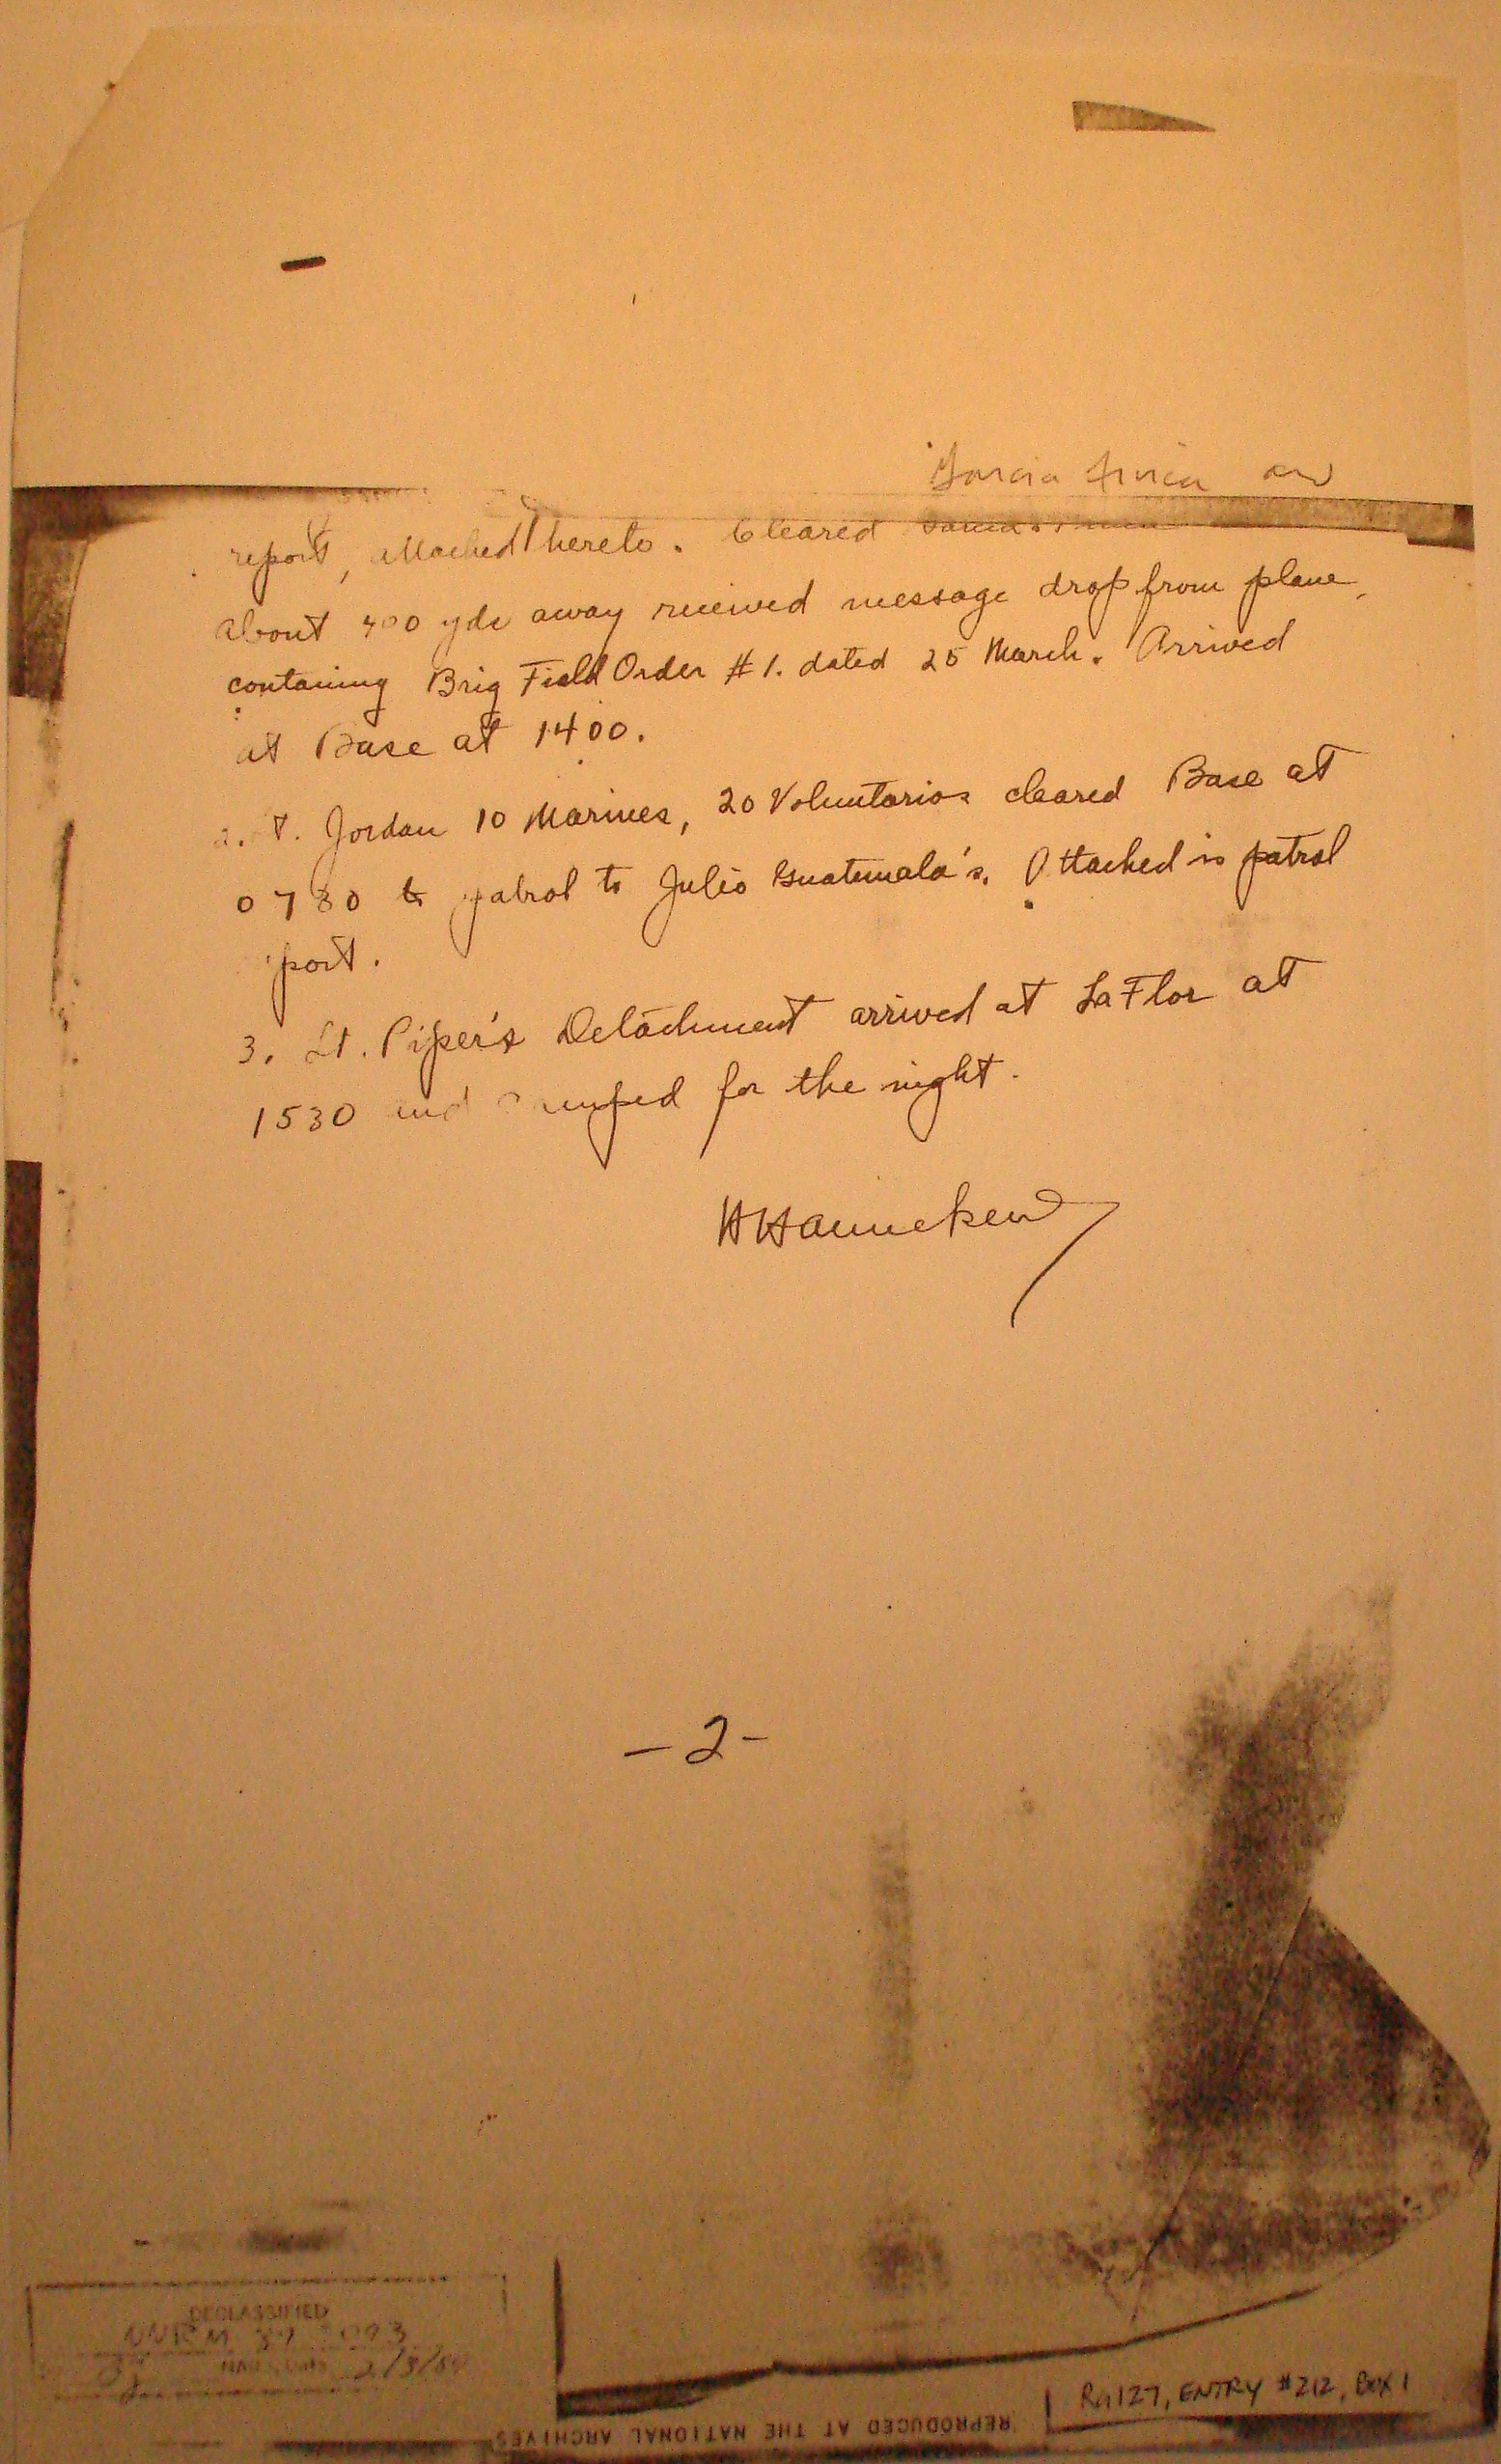 Garcia finca an
report, attached hereto. Cleared
about 400 yds away received message drop from plane,
contaning Brig Field Order #1. dated 25 March. Arrived
at Base at 1400.
t. Jordan 10 Marines, 20 Voluntarios cleared Base at
0730 to patrol to Julio Guatemala's. Attached is patrol
port.
3. Lt. Piper's Detachment arrived at La Flor at
1530 and camped for the night.
HHanneken
-2-
DECLASSIFIED
RG127, ENTRY #212, BOX 1
REPRODUCED AT THE NATIONAL ARCHIVES